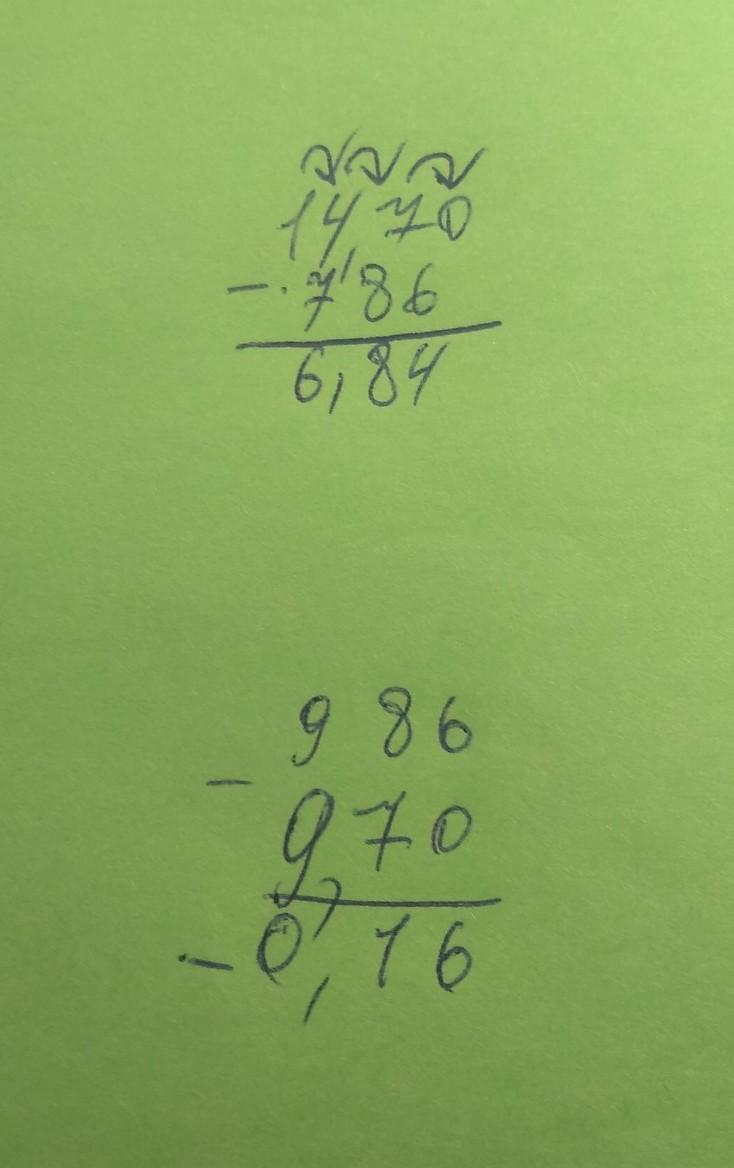 14,70
- 7,86
6,84
9 86
-
9,70
- 0,16